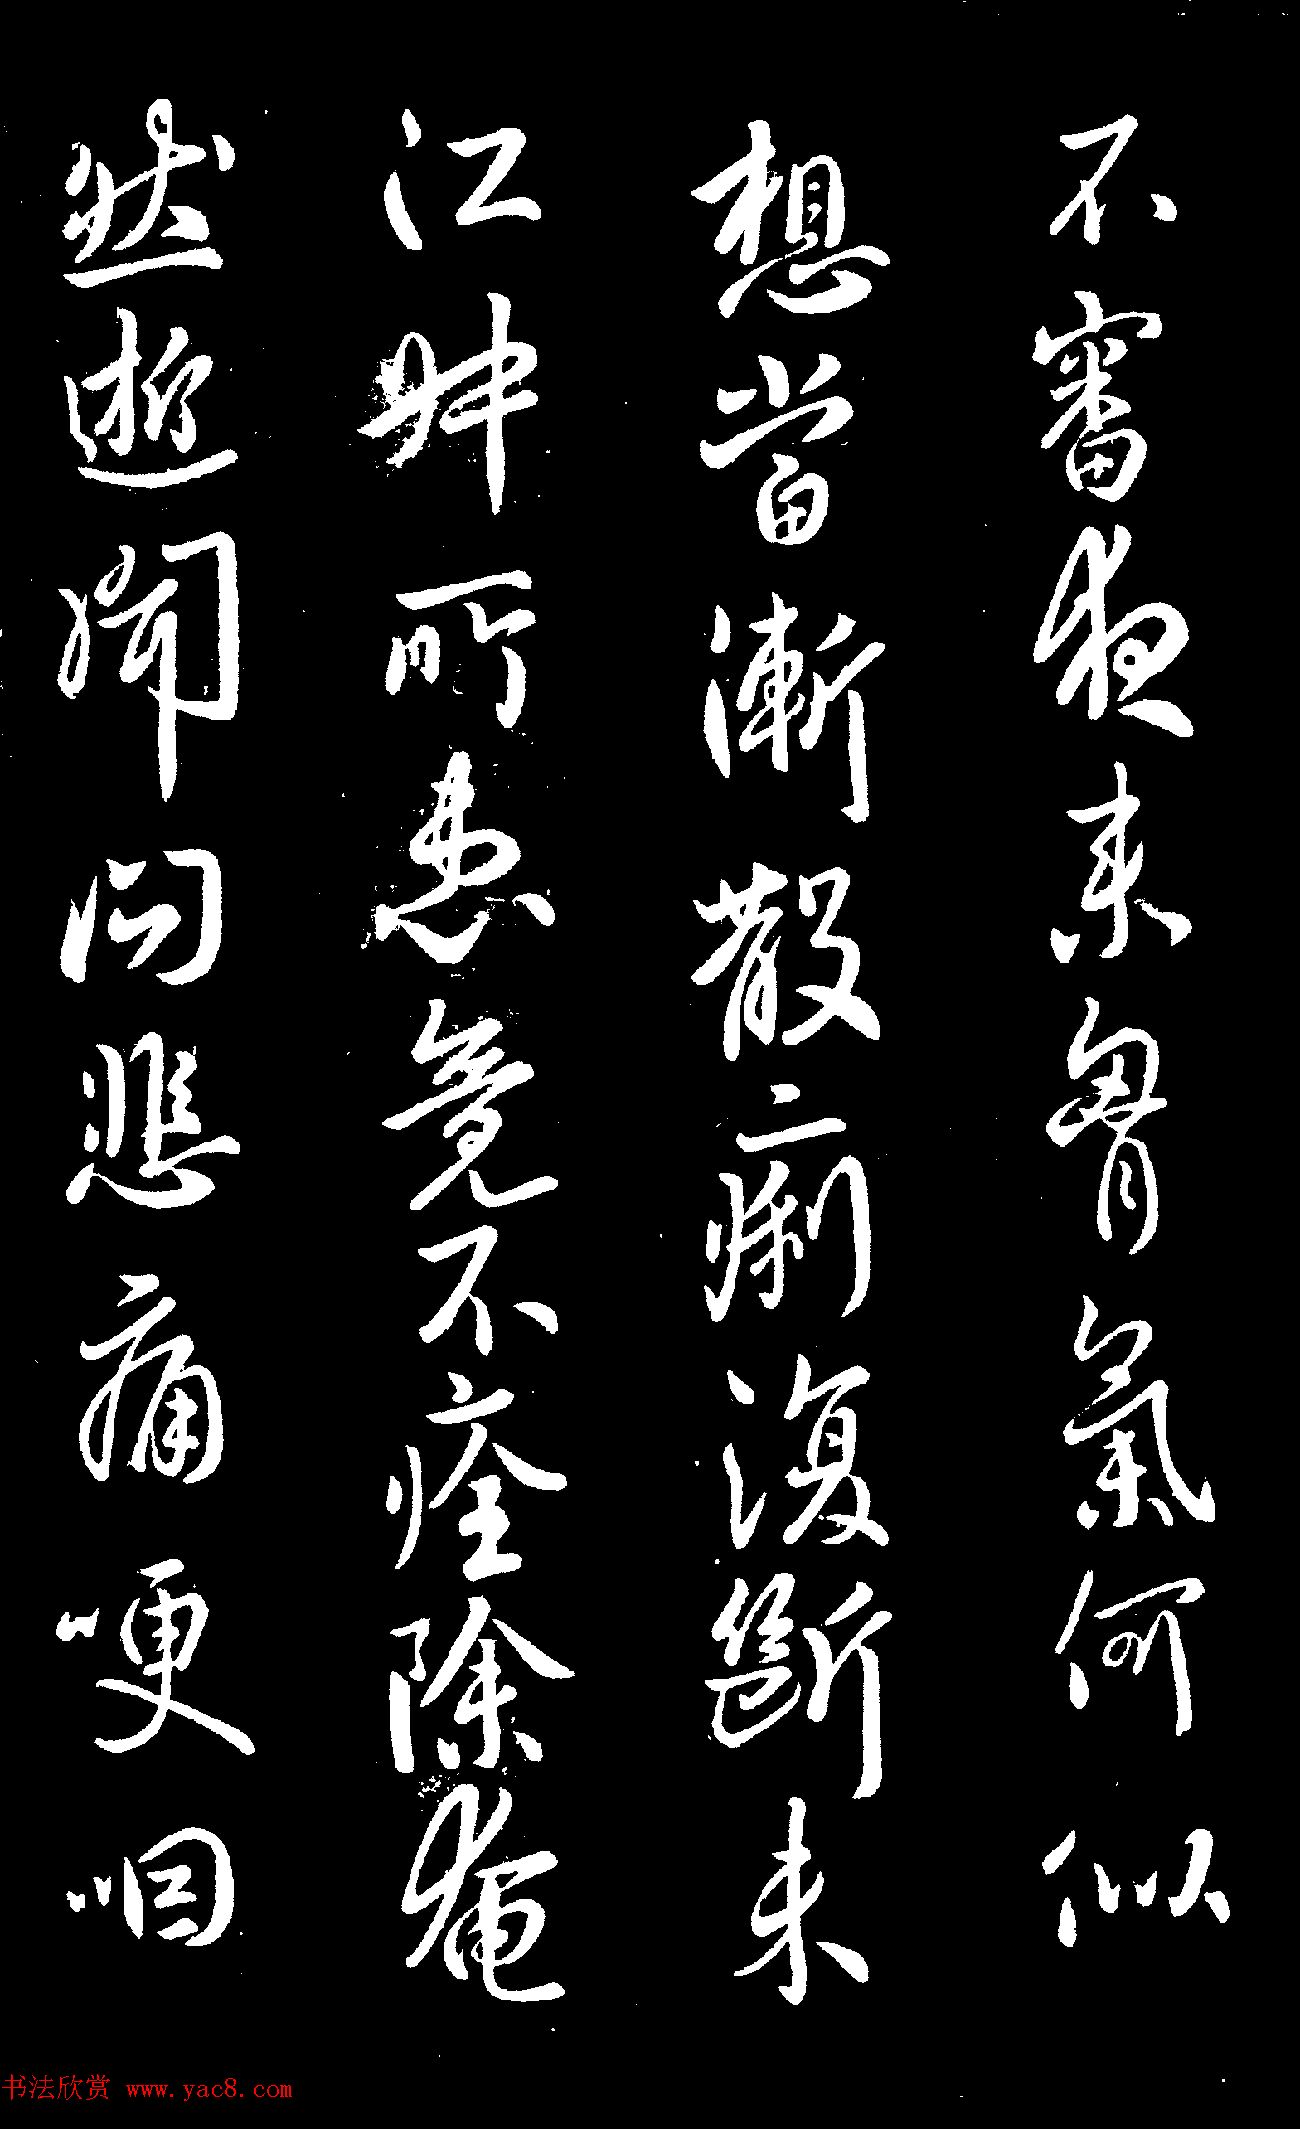 不審夜來胷氣何似
想當漸散二痢復斷未
江妹所患竟不痊除奄
然逝揥問悲痛哽咽
书法欣赏 www.yac8.com